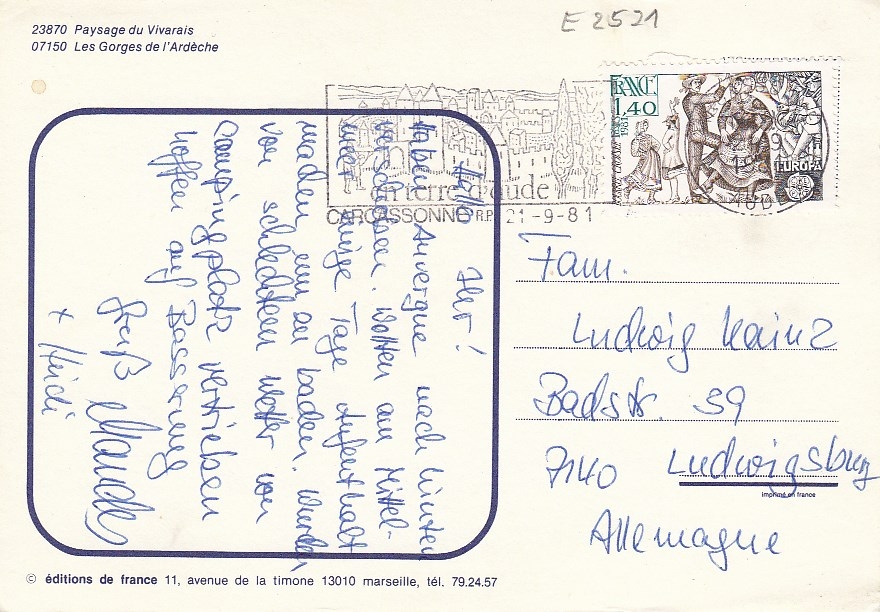 E 2521
23870 Paysage du Vivarais
07150 Les Gorges de l'Ardèche
FRANCE
1,40
EUROPA
en terre d'aude
CARCASSONNE R.P. 21-9-81
Hallo Ihr!
Haben Auvergne nach hinten
verschoben. Wollten am Mittel-
meer einige Tage Aufenthalt
machen, um zu baden. Wurden
von schlechtem Wetter von
Campingplatz vertrieben
hoffen auf Besserung
Gruß
+ Heidi
Fam.
Ludwig Kainz
Badstr. 59
7140 Ludwigsburg
Allemagne
imprimé en france
© éditions de france 11, avenue de la timone 13010 marseille, tél. 79.24.57